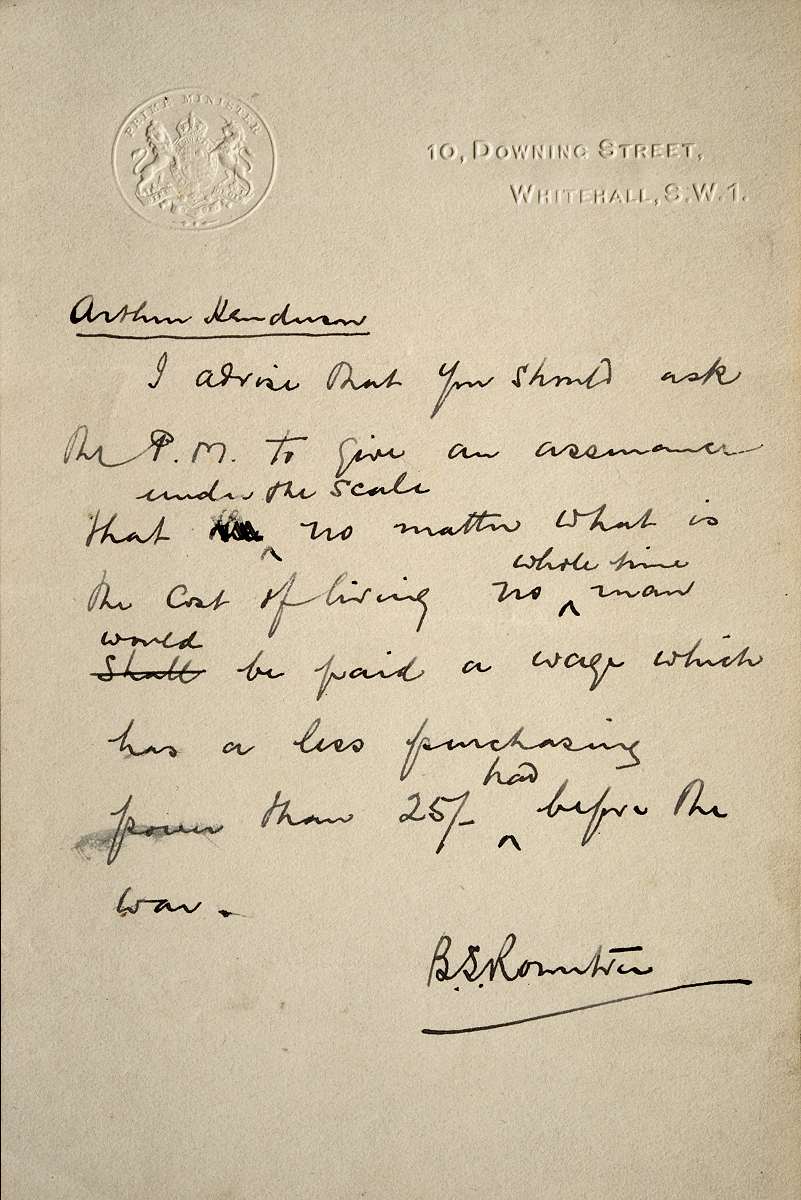 PRIME MINISTER
10, DOWNING STREET,
WHITEHALL, S.W.1.
Arthur Henderson
I advise that you should ask
the P.M. to give an assurance
under the scale
that ^ no matter what is
whole time
the cost of living no ^ man
would
Shall be paid a wage which
has a less purchasing
had
power than 25/- ^ before the
war.
B.S. Rowntree